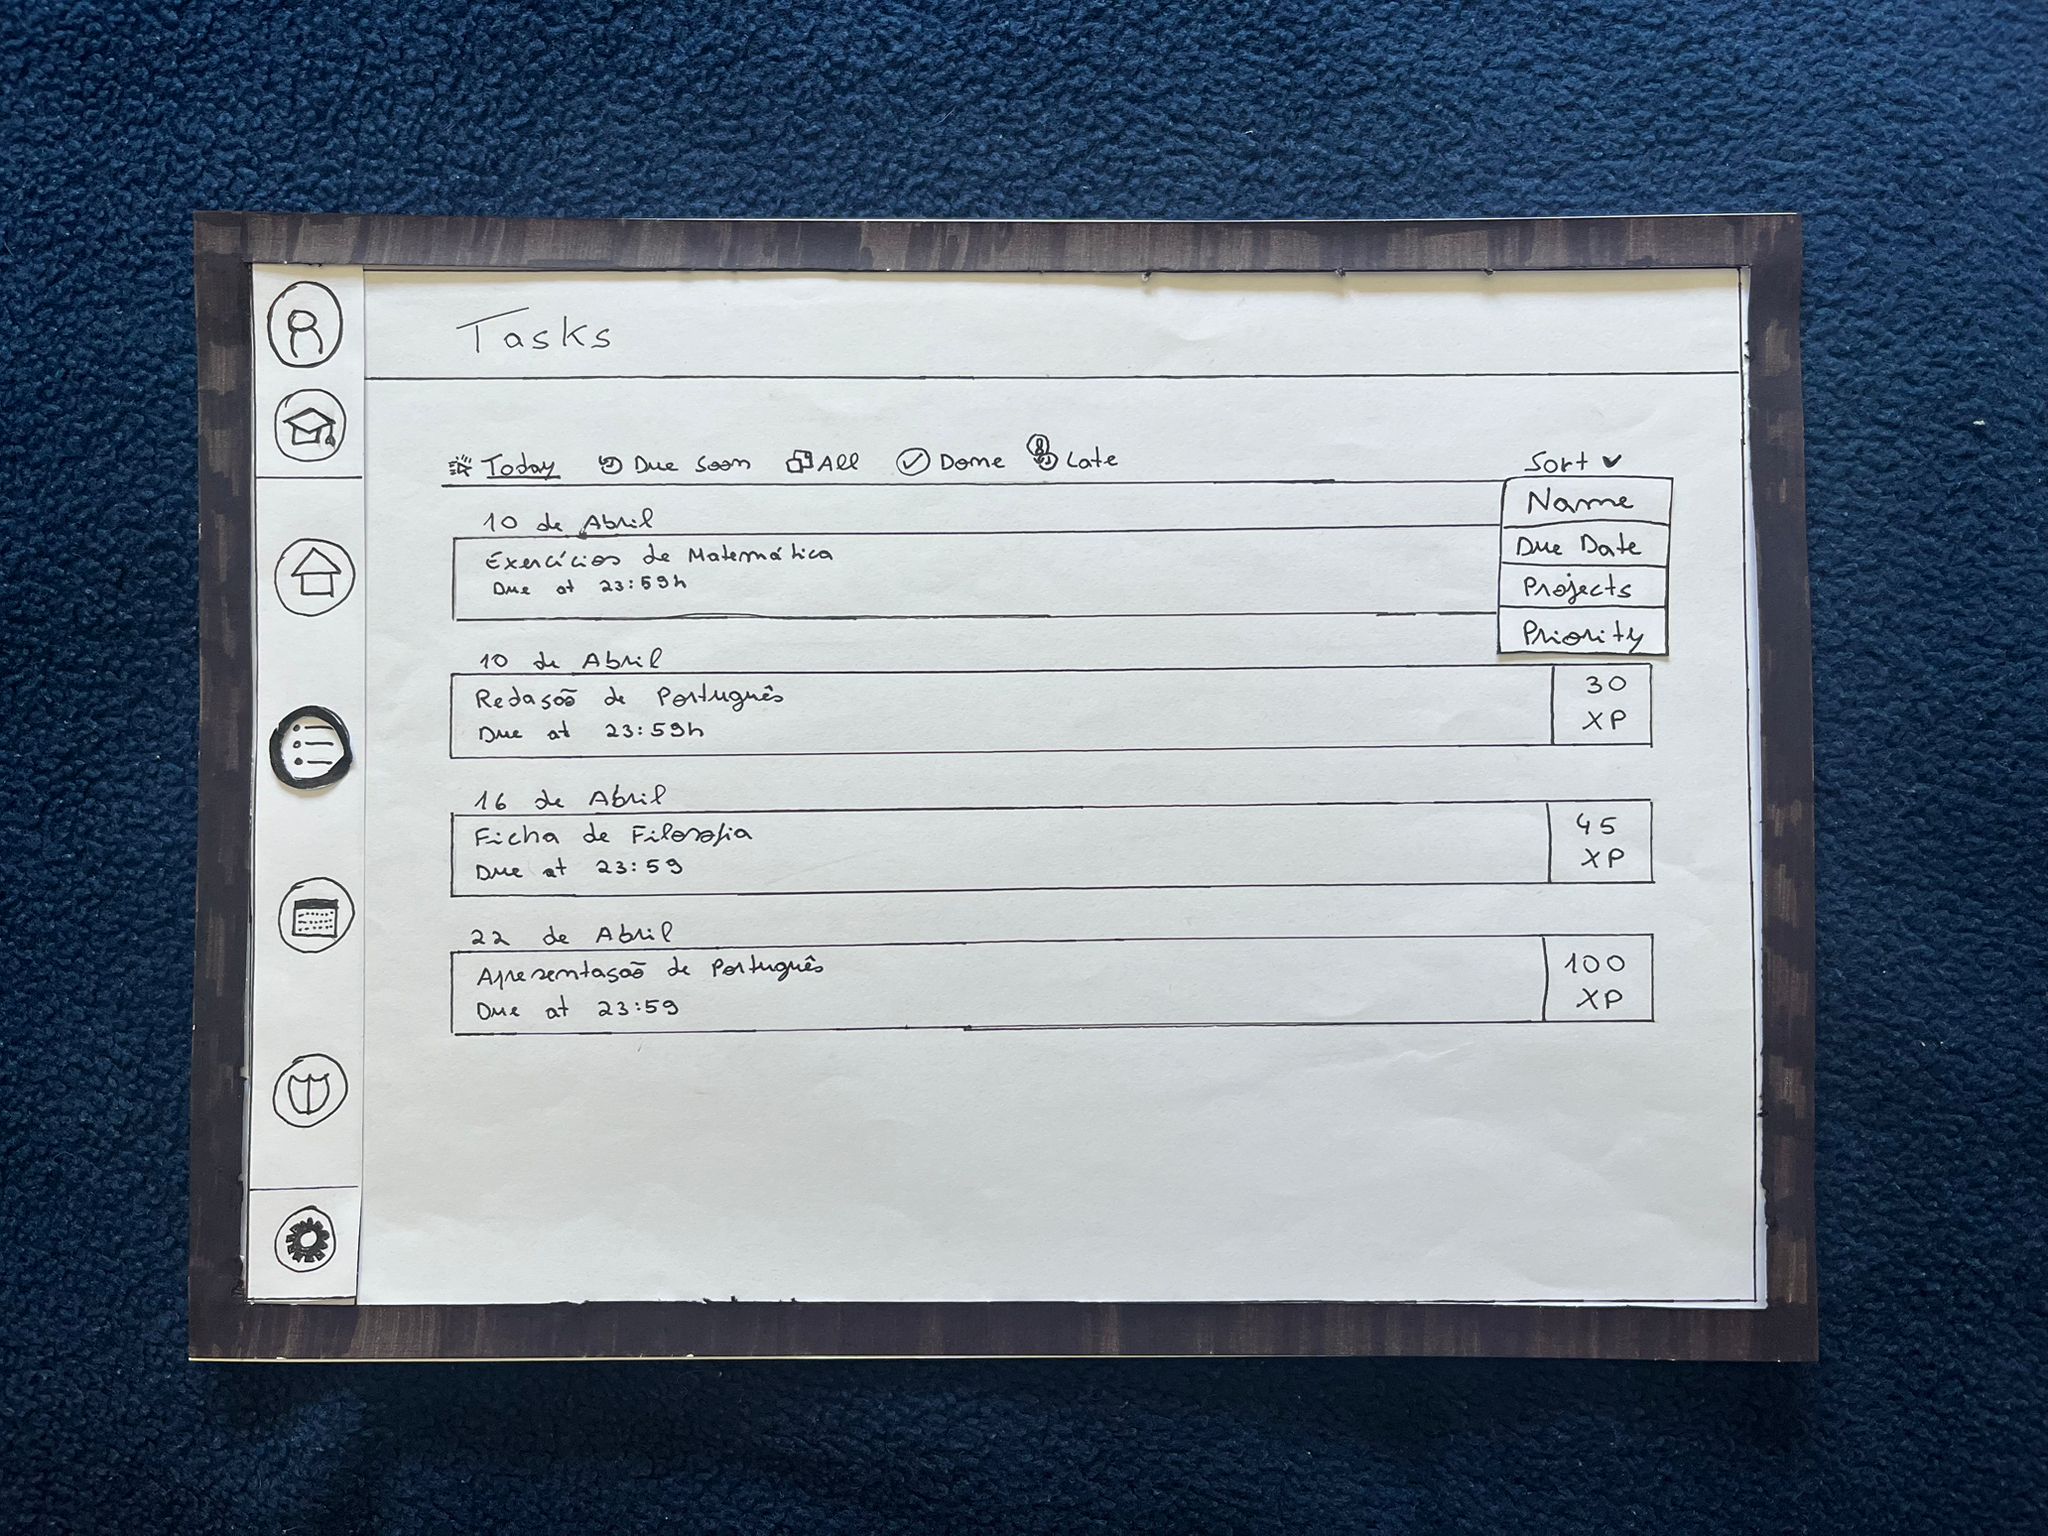 Tasks
Today Due Soon All Done 8 Late Sort
Name
Due Date
Projects
Priority
10 de Abril
Exercícios de Matemática
Due at 23:59h
10 de Abril
Redação de Português
Due at 23:59h
30
XP
16 de Abril
Ficha de Filosofia
Due at 23:59
45
XP
22 de Abril
Apresentação de Português
Due at 23:59
100
XP